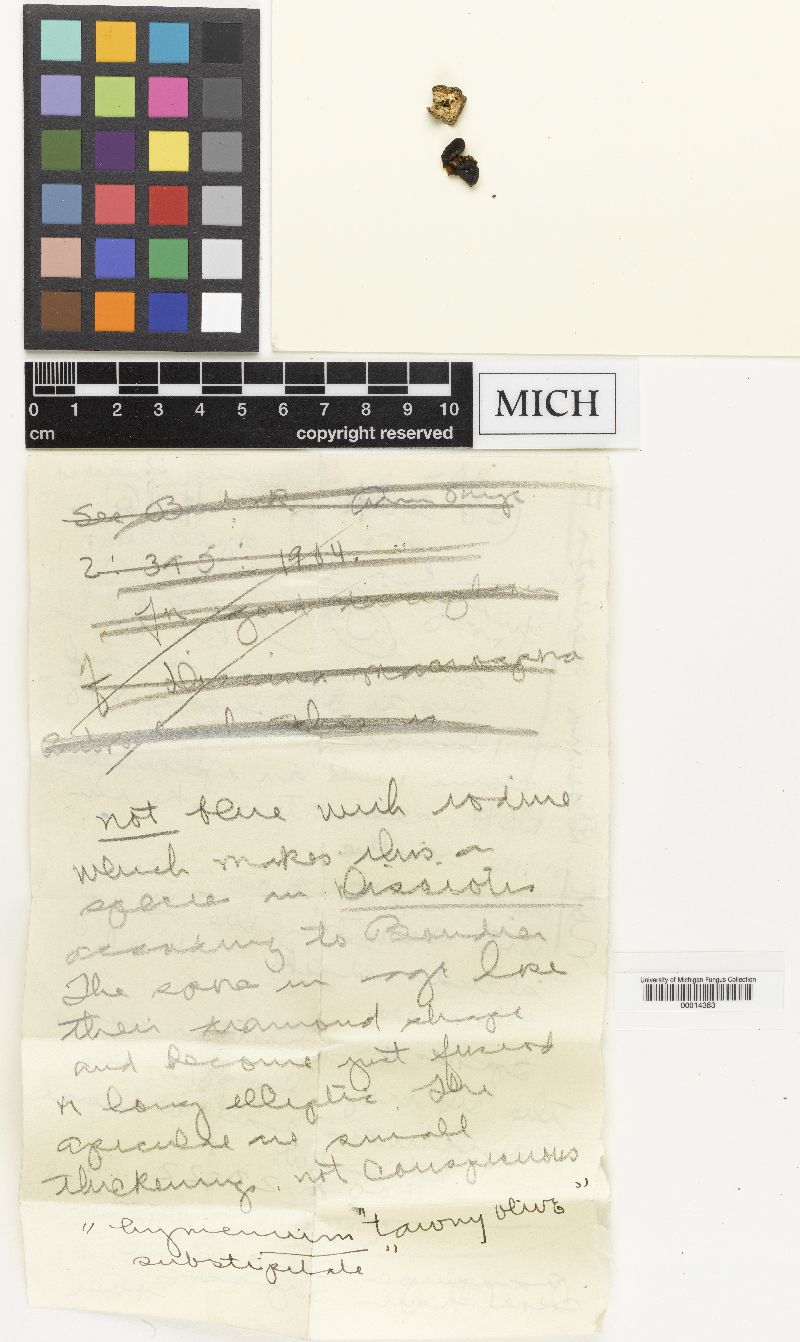 0 1 2 3 4 5 6 7 8 9 10
cm copyright reserved
MICH
See
2: 345: 1914.
In
not blue with iodine
which makes this a
species in Disciotis
according to Boudier
The spore in age lose
their diamond shape
and become just fusoid
or long elliptic. The
apiculae are small
thickenings. not conspicuous
"hymenium "tawny olive"
substipitate"
University of Michigan Fungus Collection
00014363